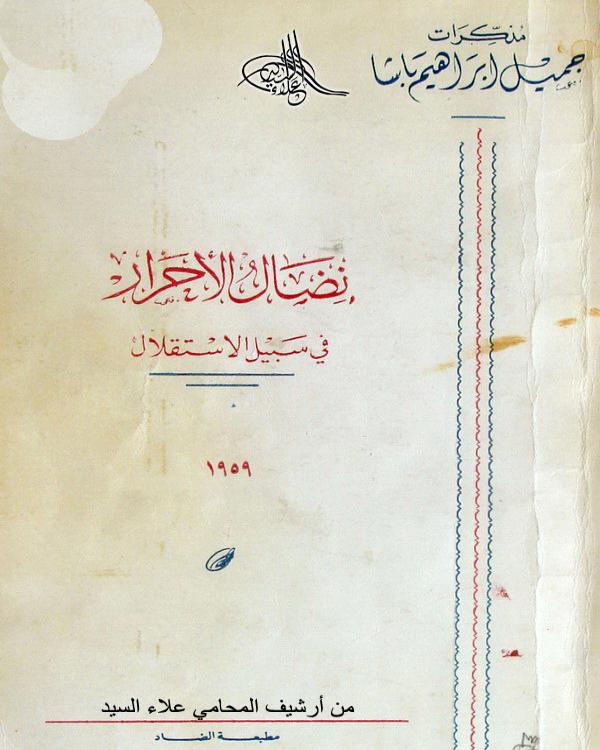 مذكِّرَات
جميل ابرَاهيم بَاشا
علاء السيد
نِضَالُ الأحرَار
في سَبيل الاستقلال
١٩٥٩
من أرشيف المحامي علاء السيد
مطبعة الضاد